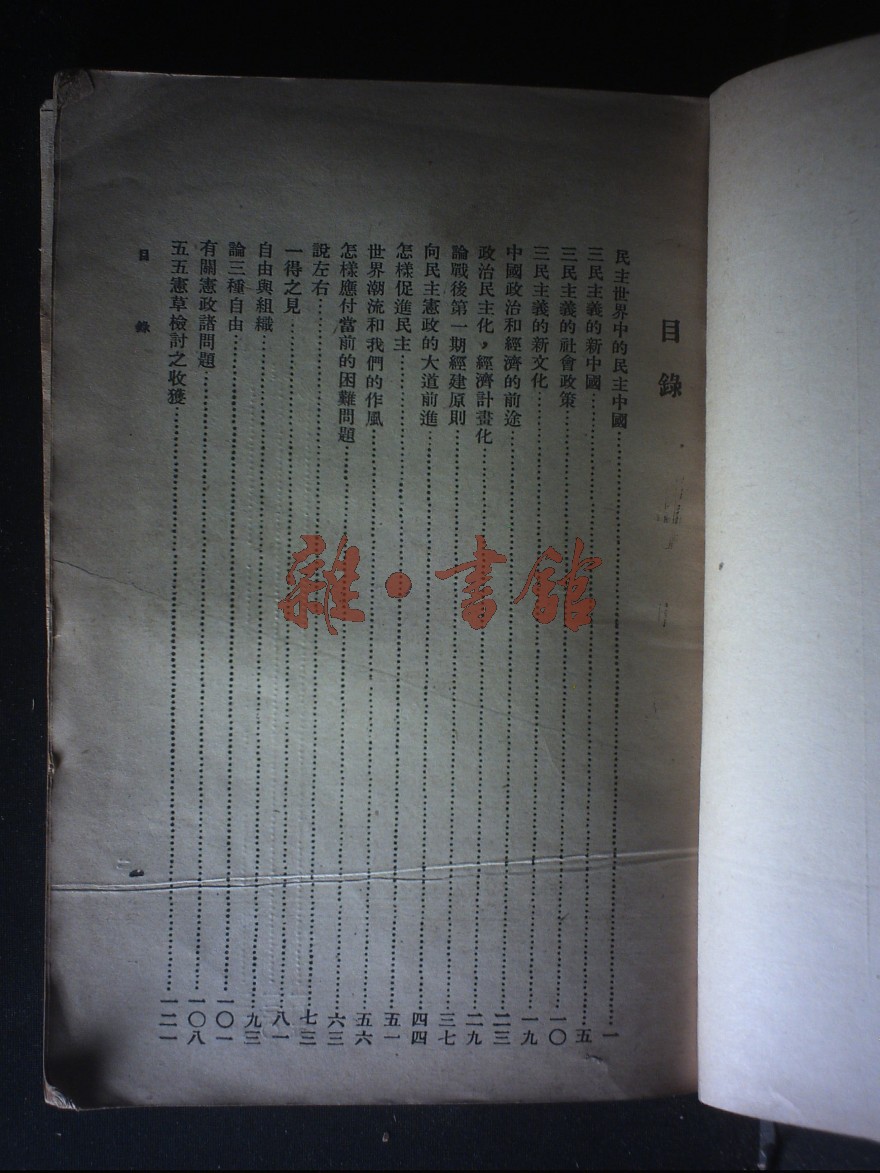 目錄
民主世界中的民主中國…一
三民主義的新中國…五
三民主義的社會政策…一〇
三民主義的新文化…一九
中國政治和經濟的前途…二三
政治民主化,經濟計畫化…二九
論戰後第一期經建原則…三七
向民主憲政的大道前進…四四
怎樣促進民主…五一
世界潮流和我們的作風…五六
怎樣應付當前的困難問題…六三
說左右…七三
一得之見…八一
自由與組織…九三
論三種自由…一〇一
有關憲政諸問題…一〇八
五五憲草檢討之收獲…一二一
目錄
雜·書館